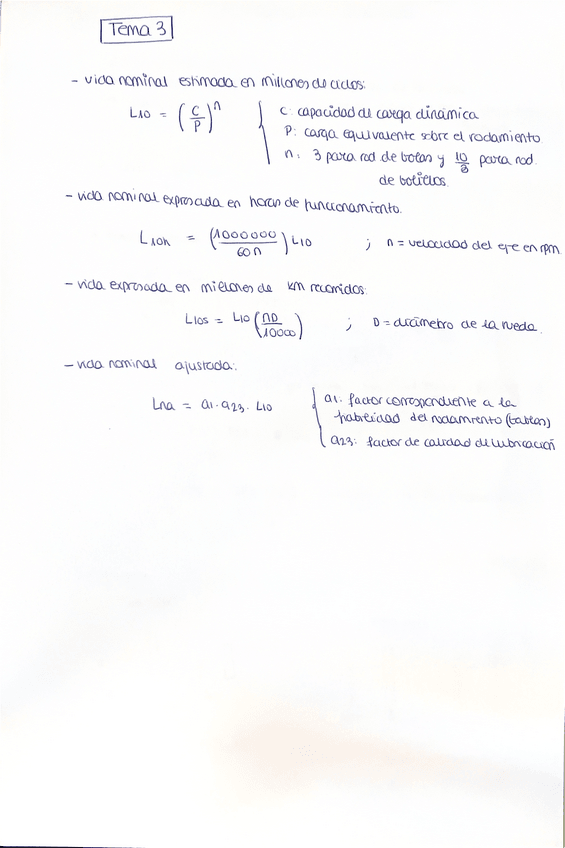 Tema 3
- vida nominal estimada en millones de ciclos:
L10 = (C/P)^n { C: capacidad de carga dinámica
P: carga equivalente sobre el rodamiento
n: 3 para rod de bolas y 10/3 para rod.
de bolillos.
- vida nominal expresada en horas de funcionamiento.
L10h = (1000000/60n) L10 ; n = velocidad del eje en rpm
- vida expresada en millones de km recorridos:
L10s = L10 (πD/1000) ; D = diámetro de la rueda.
- vida nominal ajustada:
Lna = a1 · a23 · L10 { a1: factor correspondiente a la
fiabilidad del rodamiento (tablas)
a23: factor de calidad de lubricación